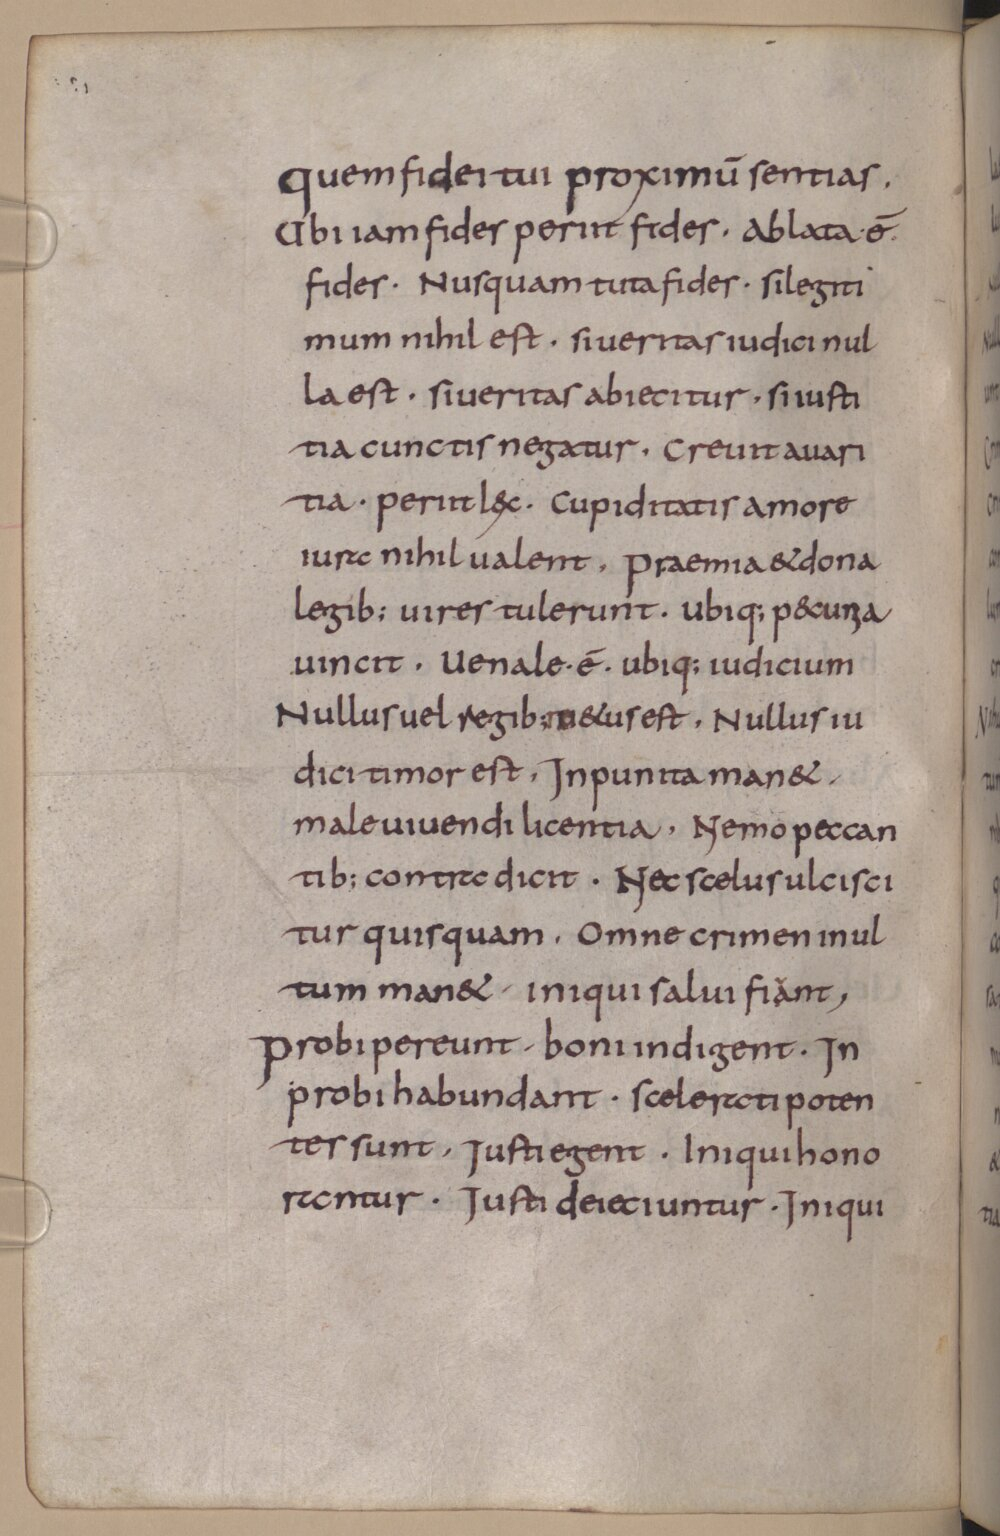 Quem fidei tui proximū sentias.
Ubi iam fides periit fides. Ablata ē.
fides. Nusquam tuta fides. si legiti
mum nihil est. si ueritas iudici nul
la est. si ueritas abiecitur. si iusti
tia cunctis negatur. Creuit auari
tia. periit l&c. Cupiditatis amore
iura nihil ualent. Praemia & dona
legib; uires tulerunt. ubiq; p&cunia
uincit. Uenale. ē. ubiq; iudicium
Nullus uel legib; m&us est. Nullus iu
dici timor est. Inpunita man&.
male uiuendi licentia. Nemo peccan
tib; contra dicit. Nec scelus ulcisci
tur quisquam. Omne crimen inul
tum man&. iniqui salui fiant,
Probi pereunt. boni indigent. In
probi habundant. scelerati poten
tes sunt. Iusti egent. Iniqui hono
rantur. Iusti deieciuntur. Iniqui